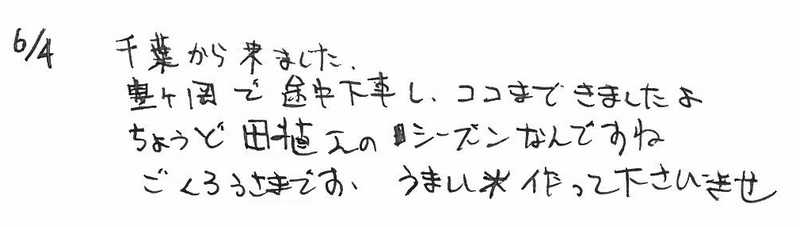 6/4 千葉から来ました.
豊ヶ岡で途中下車し、ココまできましたよ
ちょうど田植えのシーズンなんですね
ごくろうさまです、うまい米作って下さいませ